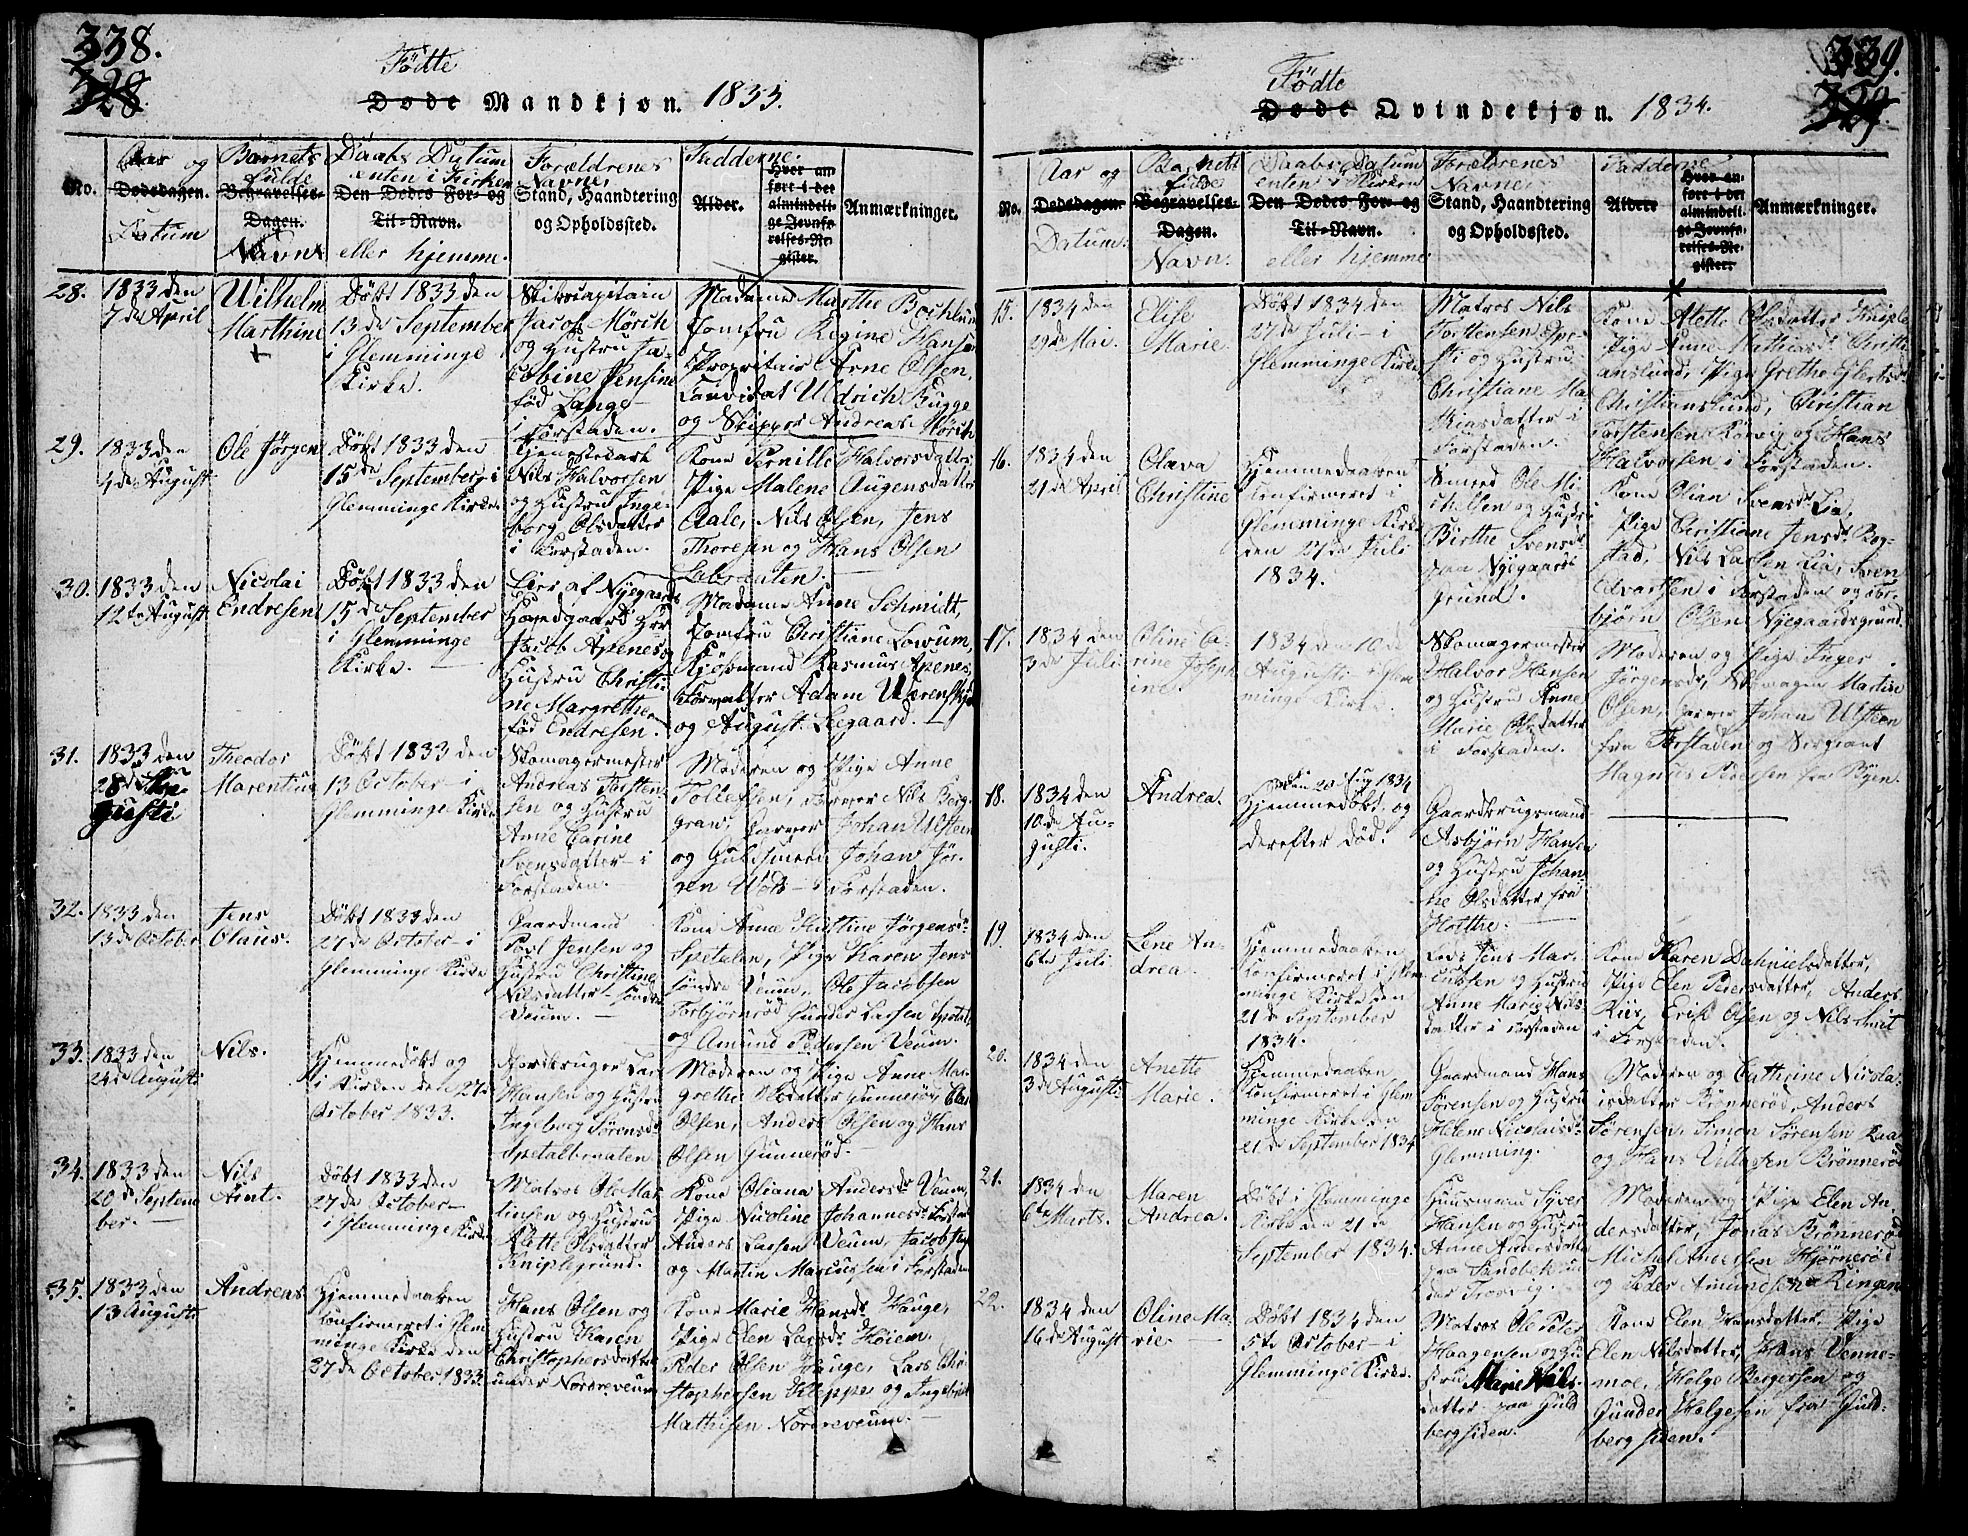 338.
328.
Födte
Døde Mandkjøn. 1833.
No.
Aar og
Dødsdagen.
Datum
Barnets
fulde
Begravelses-
Dagen.
Navn
Daabs Datum
enten i Kirken
Den Dødes For- og
Til-Navn.
eller hjemme.
Forældrenes
Navne,
Stand, Haandtering
og Opholdssted.
Fadderne.
Alder.
Hvor an-
ført i det
almindeli-
ge Jevnfø-
relses-Re-
gister.
Anmærkninger.
28.
1833 den
7de April
Wilhelm
Marthin
Döbt 1833 den
13de September
i Glemminge
Kirke.
Skibscapitain
Jacob Mörch
og Hustru Ja-
cobine Jensine
föd Lange
i Forstaden.
Madame Marthe Bochlum
Jomfru Regine Hansen
Propritair Arne Olsen,
Candidat Uldrich Bugge
og Skipper Andreas Mörch
29.
1833 den
4de August
Ole Jörgen
Döbt 1833 den
15de September i
Glemminge Kirke
Tjenestekarl
Nils Halvorsen
og Hustru Inge-
borg Olsdatter
i Forstaden.
Kone Pernille Halvorsdatter
Pige Malene Augensdatter
Aale, Nils Olsen, Jens
Thoresen og Hans Olsen
Labraaten.
30.
1833 den
12te August
Nicolai
Endresen
Döbt 1833 den
15de September
i Glemminge
Kirke.
Eier af Nygaards
Hovedgaard Hrr
Jacob Apenes og
Hustru Christi-
ne Margrethe
föd Endresen.
Madame Anne Schmidt,
Jomfru Christiane Lowum,
Kjöbmand Rasmus Apenes,
Forvalter Adam Werenskjold
og August Leegaard.
31.
1833 den
28de Au-
gusti
Theodor
Marentius
Döbt 1833 den
13 October i
Glemminge Kirke
Skomagermester
Andreas Torsten-
sen og Hustru
Anne Carine
Svensdatter i
Forstaden.
Moderen og Pige Anne
Tollefsen, Farver Nils Berg-
graw, Garver Johan Ulsteen
og Guldsmed Johan Jör-
gen Wod i Forstaden.
32.
1833 den
13de October
Jens
Olaus.
Döbt 1833 den
27de October i
Glemminge Kirke
Gaardmand
Povl Jensen og
Hustru Christine
Nilsdatter Söndre
Veum.
Kone Anne Kristine Jörgensdr
Spetalen, Pige Karen Jens
Söndre Veum, Ole Jacobsen
Torbjörnröd Gunder Larsen Spetal
og Amund Pedersen Veum.
33.
1833 den
24de Augusti
Nils.
Hjemmedöbt og
i Kirken den 27de
October 1833.
Jordbruger Lars
Hansen og Hustru
Ingeborg Sörensdr
Spetalbraaten
Moderen og Pige Anne Mar-
grethe Olsdatter Gunneröd, Claus
Olsen, Anders Olsen og Hans
Olsen Gunneröd.
34.
1833 den
20de Septem
ber.
Nils
Arnt.
Döbt 1833 den
27de October
i Glemminge Kirke
Matros Ole Mar-
tinsen og Hustru
Alette Olsdatter
Kniplegrund.
Kone Oliana Andersdr Veum,
Pige Nicoline Johannesdr Forstad
Anders Larsen Veum, Jacob
og Martin Marcussen i Forstaden
35.
1833 den
13 Augusti
Andreas
Hjemmedaaben
Konfirmeret i Glem-
minge Kirke den
27de October 1833.
Hans Olsen og
Hustru Karen
Christophersdatter
under Nordreveum
Kone Marie Hansdr Hauge,
Pige Elen Larsdr Höiem
Peder Olsen Hauge, Lars Chri-
stophersen Kleppe og Ingebret
Mathisen Nordreveum.
339.
329.
Födte
Døde Qvindekjøn. 1834.
No.
Aar og
Dødsdagen.
Datum.
Barnets
fulde
Begravelses-
Dagen.
Navn.
Daabs Datum
enten i Kirken
Den Dødes For- og
Til-Navn.
eller hjemme
Forældrenes
Navne,
Stand, Haandtering
og Opholdssted.
Fadderne
Alder.
Hvor an-
ført i det
almindeli-
ge Jevnfø-
relses-Re-
gister.
Anmærkninger.
15.
1834 den
29de Mai.
Elise
Marie.
Döbt 1834 den
27de Juli i
Glemminge Kirke
Matros Nils
Torstensen
og Hustru
Christiane Ma-
thiasdatter i
Forstaden.
Kone Alette Olsdatter Kniple
Pige Anne Mathiasdr Christi-
anslund, Pige Grethe
Christianslund, Christian
Torstensen og Hans
Halvorsen i Forstaden.
16.
1834 den
21de April
Olava
Christine
Hjemmedaaben
Konfirmeret i
Glemminge Kirke
den 27de Juli
1834.
Smed Ole Mi-
chelsen og Hustru
Birthe Svensdr
paa Nygaards
grund.
Kone Olian Svensdr Lia,
Pige Christiane Jensdr Bog-
stad, Nils Larsen Lia, Sven
Edvartsen i Forstaden og
björn Olsen Nygaardsgrund.
17.
1834 den
3de Juli
Oline Ca-
rine Joseph-
ine.
1834 den 10de
Augusti i Glem-
minge Kirke.
Skomagermester
Halvor Hansen
og Hustru Anne
Marie Olsdatter
i Forstaden.
Moderen og Pige Inger
Jörgensdr, Skomager Martin
Olsen, Garver Johan Ulsteen
fra Forstaden og Sergeant
Magnus Pedersen fra Byen.
18.
1834 den
10de Au-
gusti.
Andrea.
den 20 Aug 1834
Hjemmedöbt og
derefter död.
Gaardbrugsmand
Asbjörn Hansen
og Hustru Johan-
ne Olsdatter fra
Holthe.
19.
1834 den
6te Juli
Lene An-
drea.
Hjemmedaaben
Konfirmeret i Glem-
minge Kirke den
21de September
1834.
Lods Jens Mar-
cussen og Hustru
Anne Marie Nils-
datter i Forstaden
Kone Karen Dahnielsdatter,
Pige Elen Pedersdatter, Anders
Riis, Erik Olsen og Nils
i Forstaden.
20.
1834 den
3de Augusti
Anette
Marie.
Hjemmedaaben
Konfirmeret i Glem-
minge Kirke den
21de September 1834
Gaardmand Hans
Sörensen og Hustru
Helene Nicolaisdr
Glemming.
Moderen og Cathrine Nicola-
isdatter Brönneröd, Anders
Sörensen, Simon Sörensen
og Hans Brönneröd
21.
1834 den
6te Marts.
Maren
Andrea.
Döbt i Glemminge
Kirke den 21de
September 1834.
Huusmand Syver
Hansen og Hustru
Anne Andersdatter
paa Sandbek un-
der Trosvig.
Moderen og Pige Elen An-
dersdatter, Jonas Brönneröd
Michel Andersen Hjörneröd
og Peder Amundsen Ringen
22.
1834 den
16de August
Oline Ma-
rie.
Döbt 1834 den
5te October i
Glemminge Kirke.
Matros Ole Peter
Haagensen og Hu-
stru Marie Nils-
datter paa Guld
bergsiden.
Kone Elen Hansdatter, Pige
Elen Nilsdatter, Hans Venne-
moe, Helge Bergersen og
Gunder Helgesen fra Guld-
bergsiden.